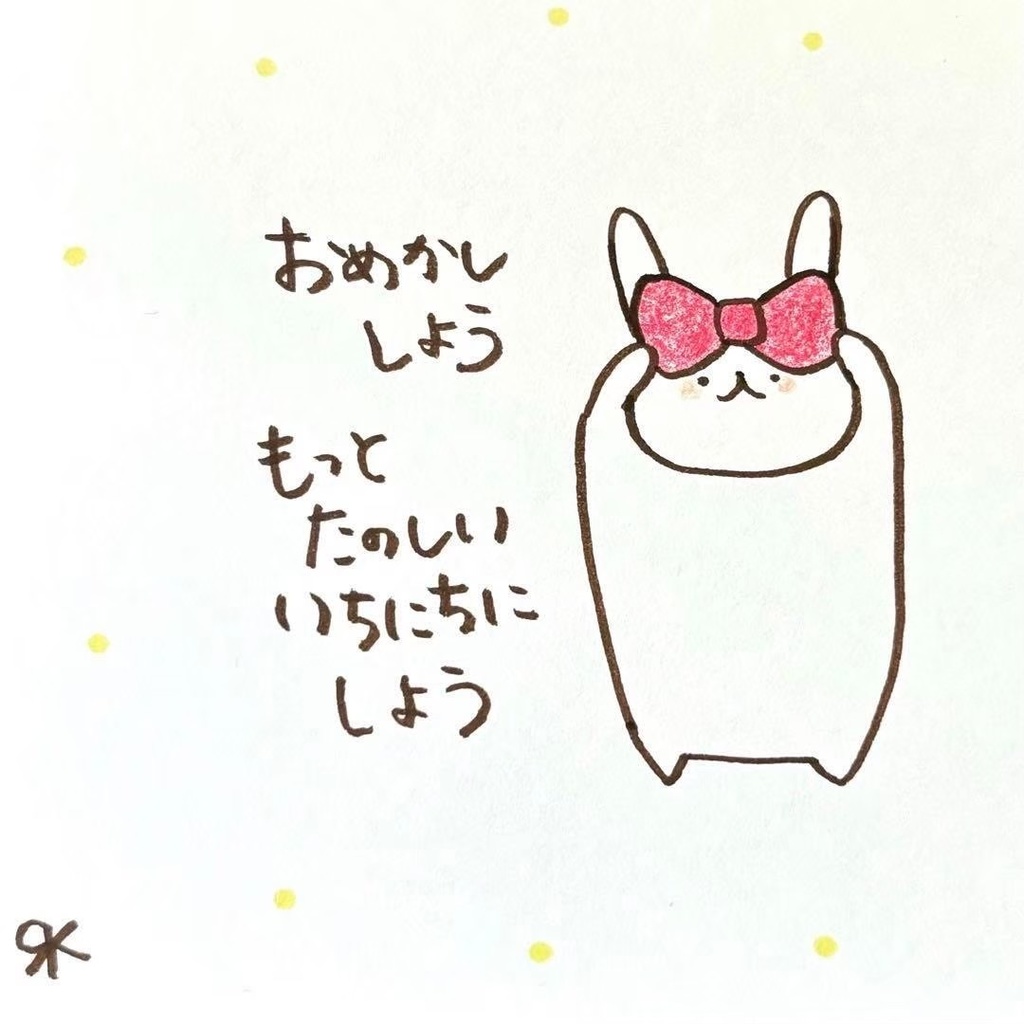 おめかし
しよう
もっと
たのしい
いちにちに
しよう